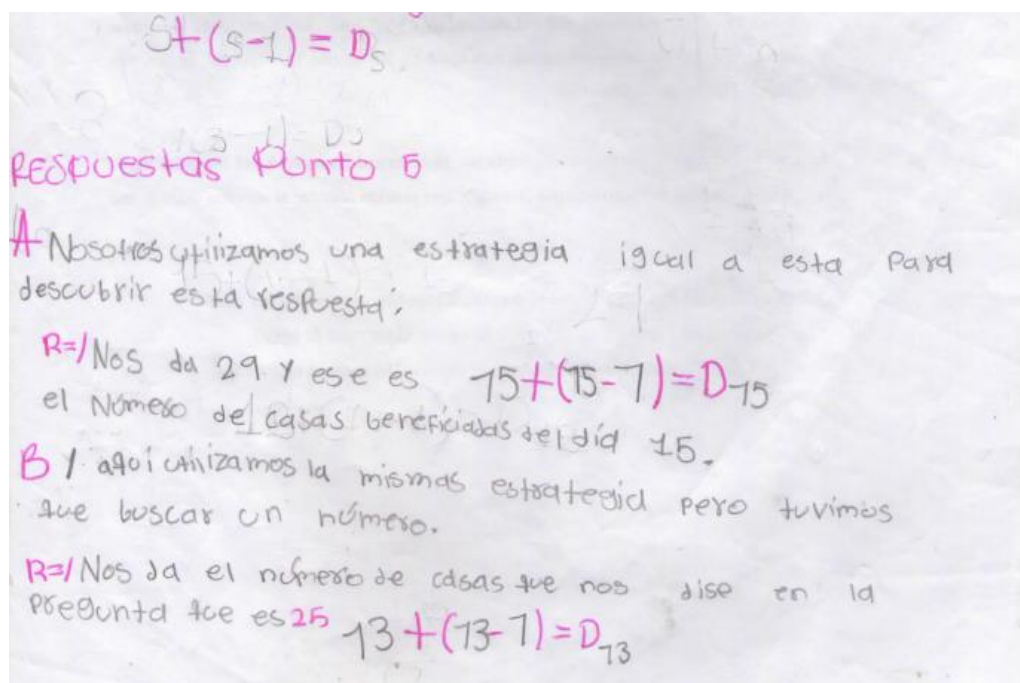 S+(S-1) = D_S
RESPUESTAS PUNTO 5
A Nosotros utilizamos una estrategia igual a esta para
descubrir esta respuesta:
R=/ Nos da 29 y ese es 15+(15-1)=D_15
el Número de casas beneficiadas del día 15.
B / aqui utilizamos la mismas estrategia pero tuvimos
que buscar un número.
R=/ Nos da el número de casas que nos dise en la
pregunta que es 25 13+(13-1)=D_13